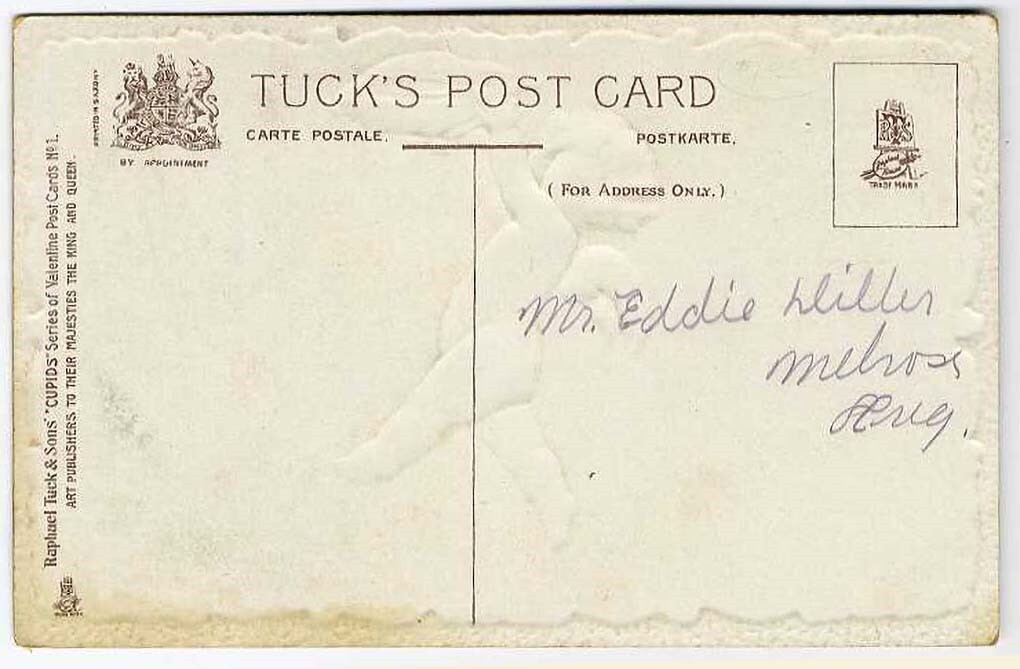 TUCK'S POST CARD
CARTE POSTALE.
POSTKARTE.
BY APPOINTMENT
(FOR ADDRESS ONLY.)
TRADE MARK
PRINTED IN SAXONY
Raphael Tuck & Sons' "CUPIDS" Series of Valentine Post Cards No 1.
ART PUBLISHERS TO THEIR MAJESTIES THE KING AND QUEEN.
Mr. Eddie Willer
Melrose